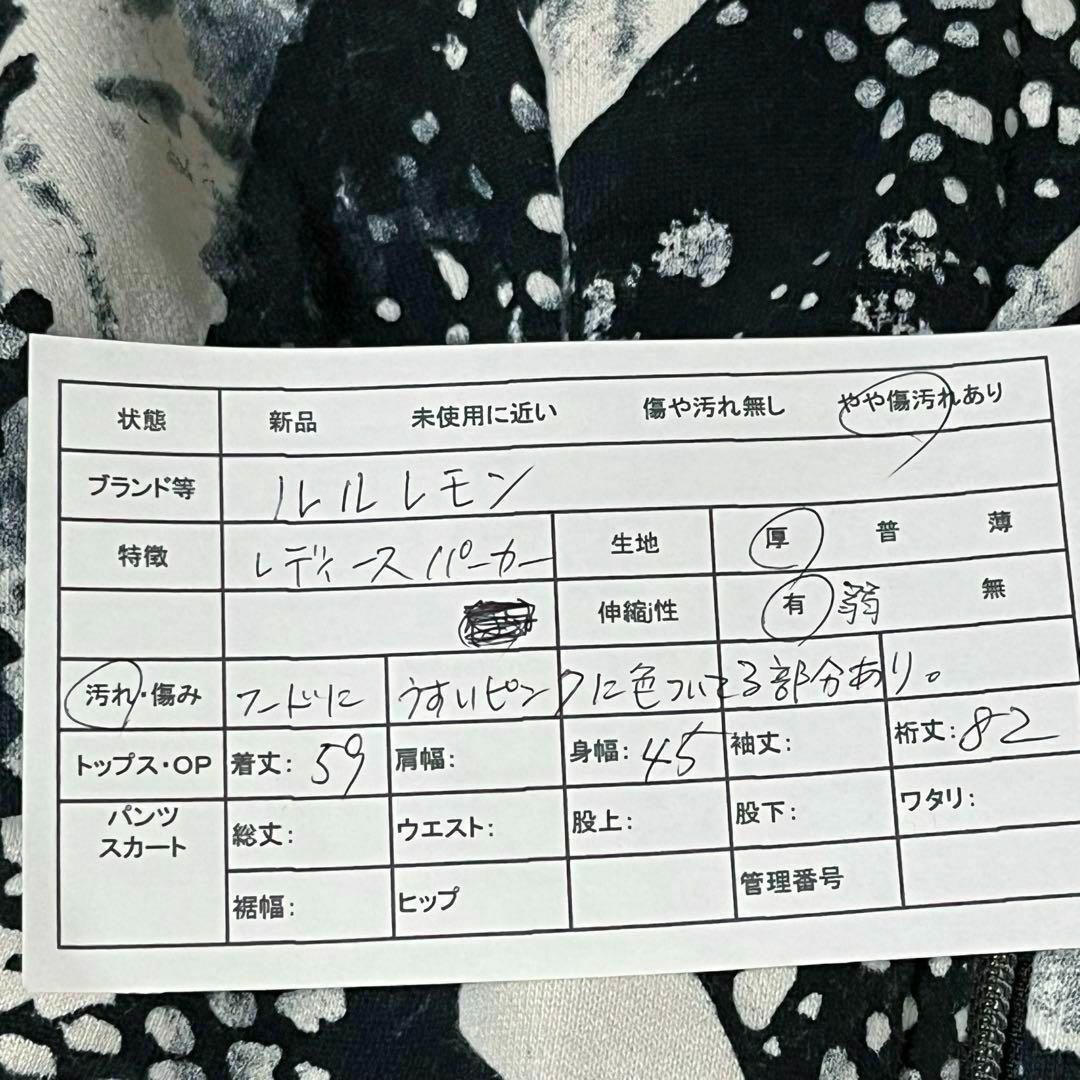 状態 新品 未使用に近い 傷や汚れ無し やや傷汚れあり
ブランド等 ルルレモン
特徴 レディースパーカー 生地 厚 普 薄
伸縮j性 有 弱 無
汚れ・傷み フードにうすいピンクに色ついてる部分あり。
トップス・OP 着丈: 59 肩幅: 身幅: 45 袖丈: 裄丈: 82
パンツ
スカート 総丈: ウエスト: 股上: 股下: ワタリ:
裾幅: ヒップ 管理番号